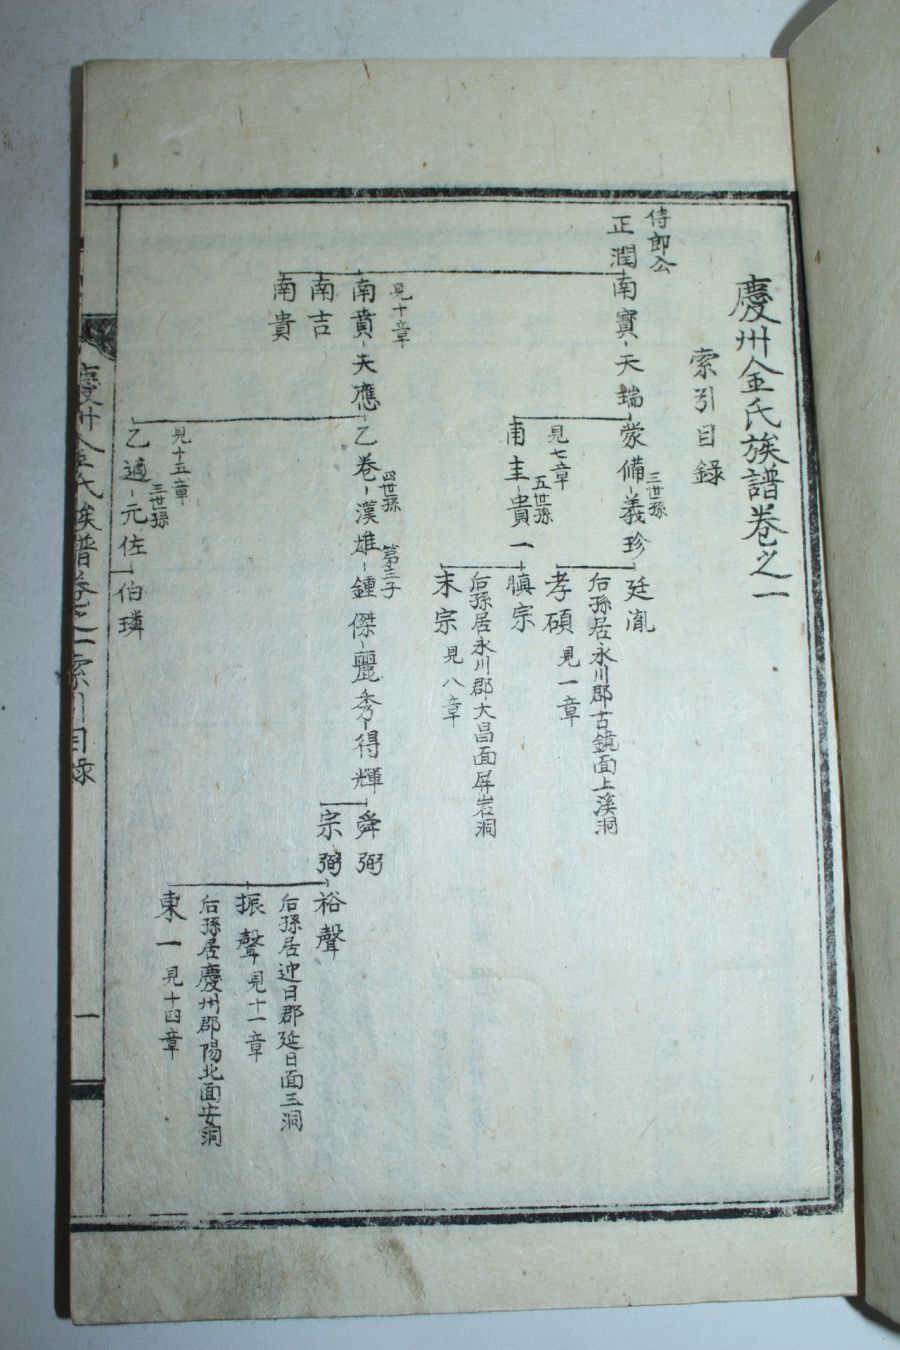 慶州金氏族譜卷之一
索引目錄
侍郎公
正潤
南寶 天瑞 蒙備 義珍
三世孫
廷胤
后孫居永川郡古鏡面上溪洞
孝碩 見一章
見七章
甫圭 貴一
五世孫
愼宗
后孫居永川郡大昌面屛岩洞
末宗 見八章
見十章
南賁 天應 乙卷 漢雄 鍾傑 麗秀 得輝 舜弼
四世孫
第三子
南吉
南貴
宗弼
裕聲
后孫居迎日郡延日面三洞
振聲 見十一章
后孫居慶州郡陽北面安洞
東一 見十四章
見十五章
乙適 元佐 伯璘
三世孫
慶州金氏族譜卷之一 索引目錄
一